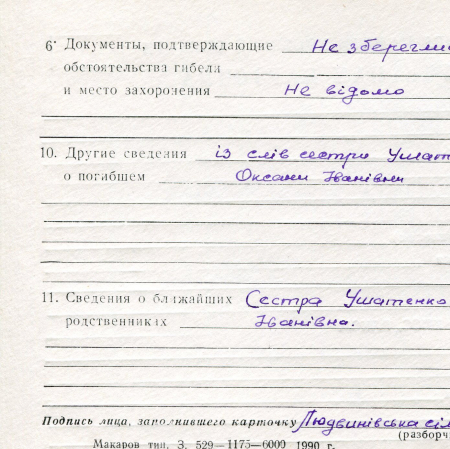 6. Документы, подтверждающие Не збереглис
обстоятельства гибели
и место захоронения Не відомо
10. Другие сведения із слів сестри Ушат
о погибшем Оксани Іванівни
11. Сведения о ближайших Сестра Ушатенко
родственниках Іванівна.
Подпись лица, заполнившего карточку Людвинівська сіл
(разборч
Макаров тип. З. 529—1175—6000 1990 г.